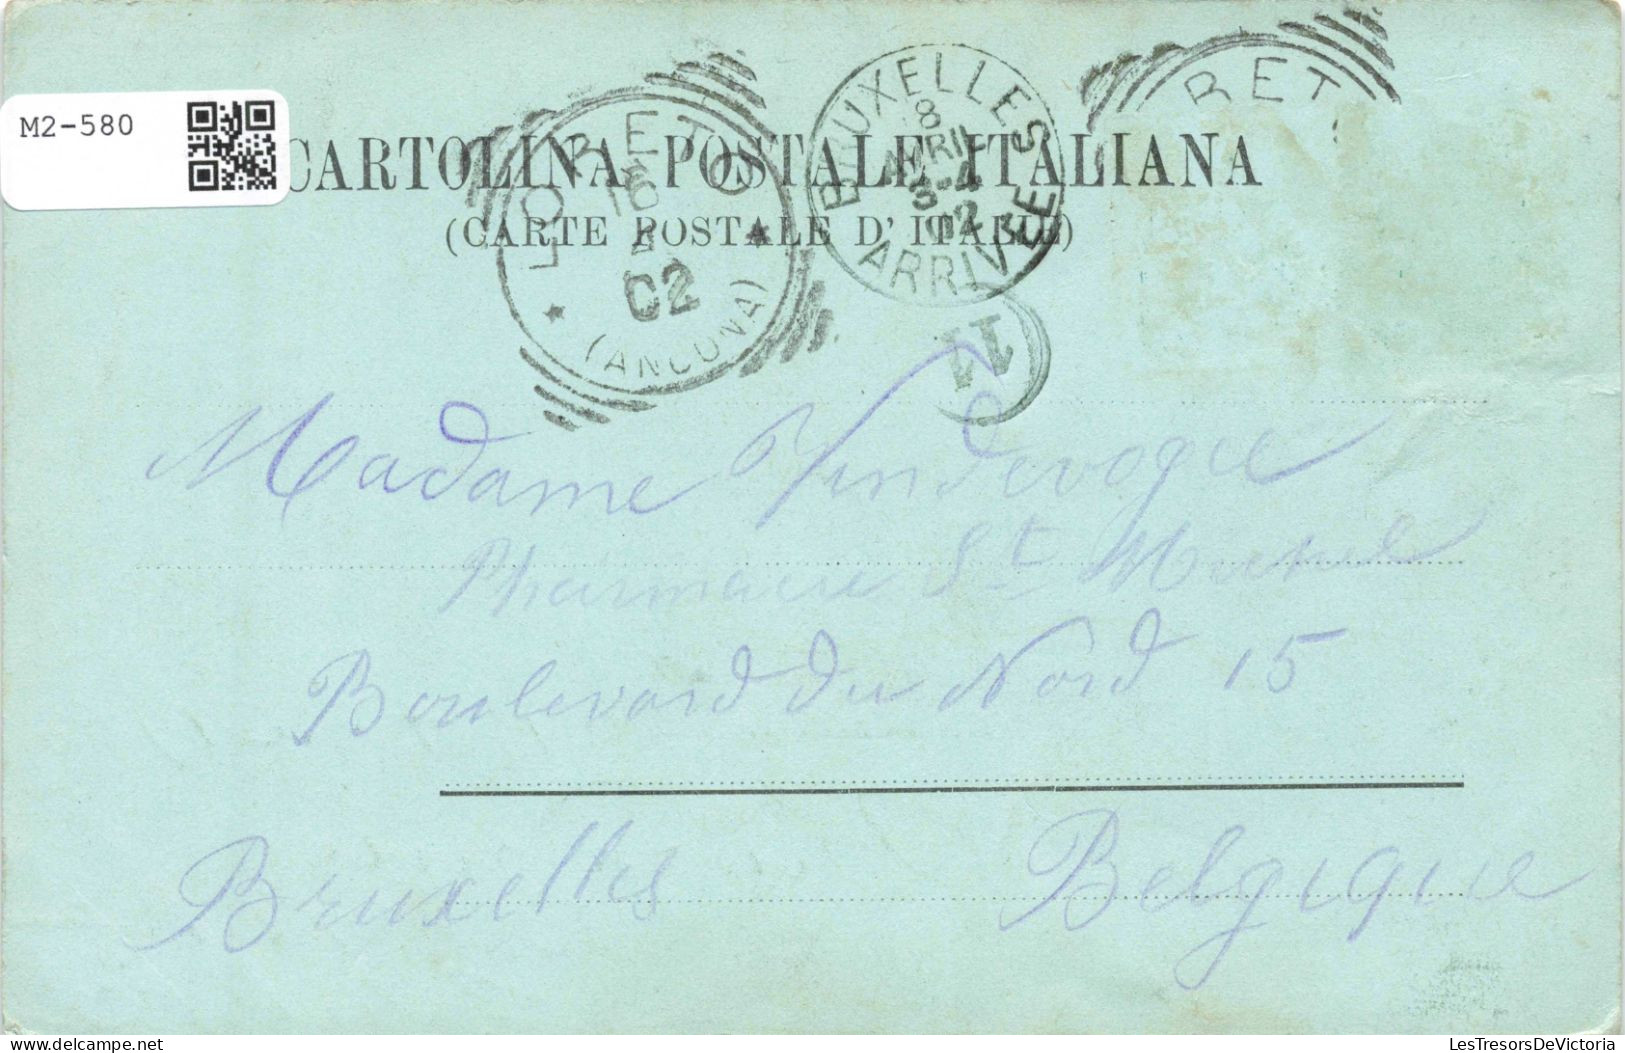 M2-580
CARTOLINA POSTALE ITALIANA
(CARTE POSTALE D'ITALIE)
LORETO
16
4
02
(ANCONA)
BRUXELLES
8
AVRIL
3-4
02
ARRIVEE
RET
11
Madame Vindevogel
Pharmacie St Michel
Boulevard du Nord 15
Bruxelles Belgique
delcampe.net
LesTresorsDeVictoria